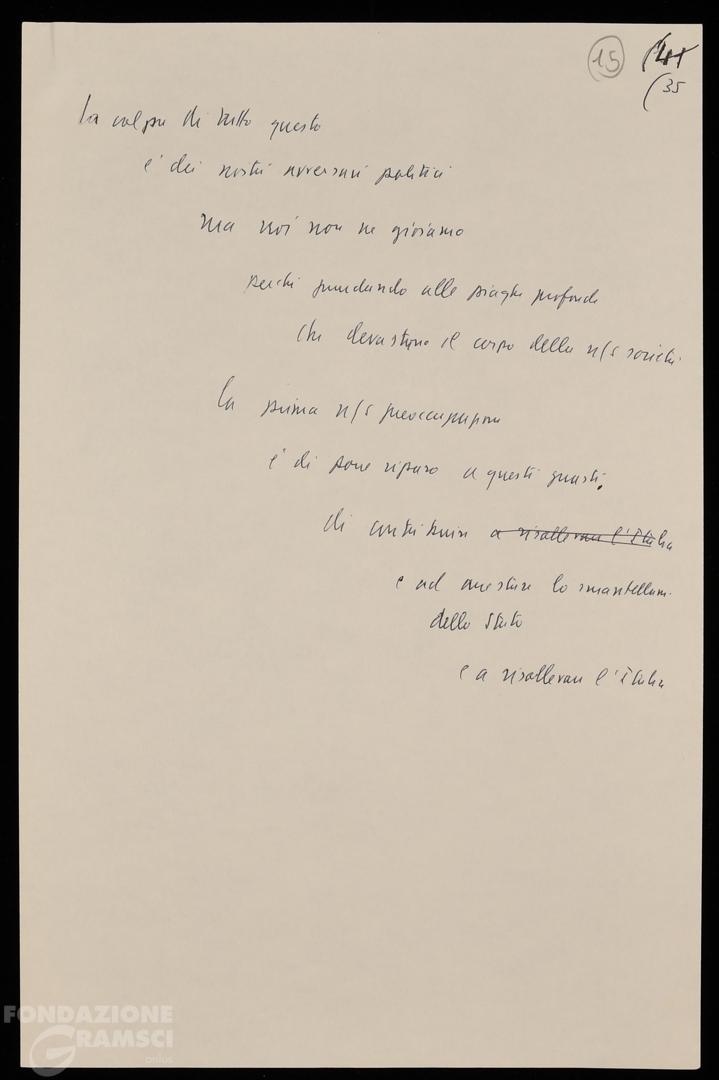 15 41
35
la colpa di tutto questo
e' dei nostri avversari politici
ma noi non ne gioiamo
perché guardando alle piaghe profonde
che devastano il corpo della n/s società
la prima n/s preoccupazione
e' di porre riparo a questi guasti,
di contribuire a risollevare l'Italia
e ad arrestare lo smantellam.
dello Stato
e a risollevare l'Italia
FONDAZIONE
GRAMSCI
onlus